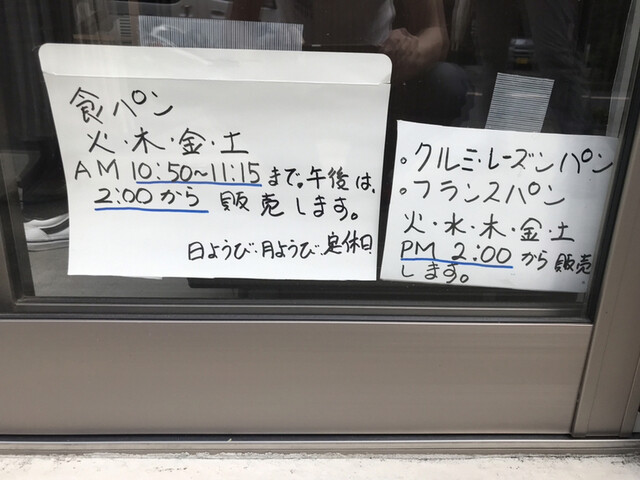 食パン
火・木・金・土
AM 10:50~11:15まで。午後は、
2:00から 販売します。
日ようび・月ようび・定休日
。クルミ・レーズンパン
。フランスパン
火・水・木・金・土
PM 2:00から販売
します。